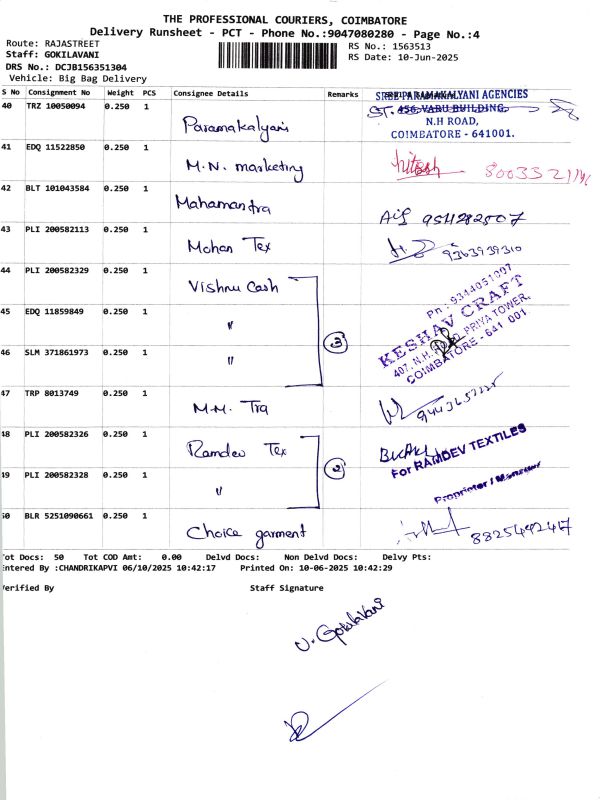 THE PROFESSIONAL COURIERS, COIMBATORE
Delivery Runsheet - PCT - Phone No.:9047080280 - Page No.:4
Route: RAJASTREET
Staff: GOKILAVANI
DRS No.: DCJB156351304
Vehicle: Big Bag Delivery
RS No.: 1563513
RS Date: 10-Jun-2025
S No Consignment No Weight PCS Consignee Details Remarks
40 TRZ 10050094 0.250 1 Paramakalyani
SREE PARAMAKALYANI AGENCIES
ST. 456, VARU BUILDING,
N.H ROAD,
COIMBATORE - 641001.
41 EDQ 11522850 0.250 1 M.N. marketing
42 BLT 101043584 0.250 1 Mahamantra
43 PLI 200582113 0.250 1 Mohan Tex 9363939310
44 PLI 200582329 0.250 1 Vishnu Cash
45 EDQ 11859849 0.250 1 〃
46 SLM 371861973 0.250 1 〃
3
Pn : 9344051097
KESHAV CRAFT
407, N.H. ROAD, PRIYA TOWER,
COIMBATORE - 641 001
47 TRP 8013749 0.250 1 M.M. Tra
48 PLI 200582326 0.250 1 Ramdev Tex
49 PLI 200582328 0.250 1 〃
2
For RAMDEV TEXTILES
Proprietor / Manager
50 BLR 5251090661 0.250 1 Choice garment
Tot Docs: 50 Tot COD Amt: 0.00 Delvd Docs: Non Delvd Docs: Delvy Pts:
Entered By :CHANDRIKAPVI 06/10/2025 10:42:17 Printed On: 10-06-2025 10:42:29
Verified By Staff Signature
V. Gokilavani